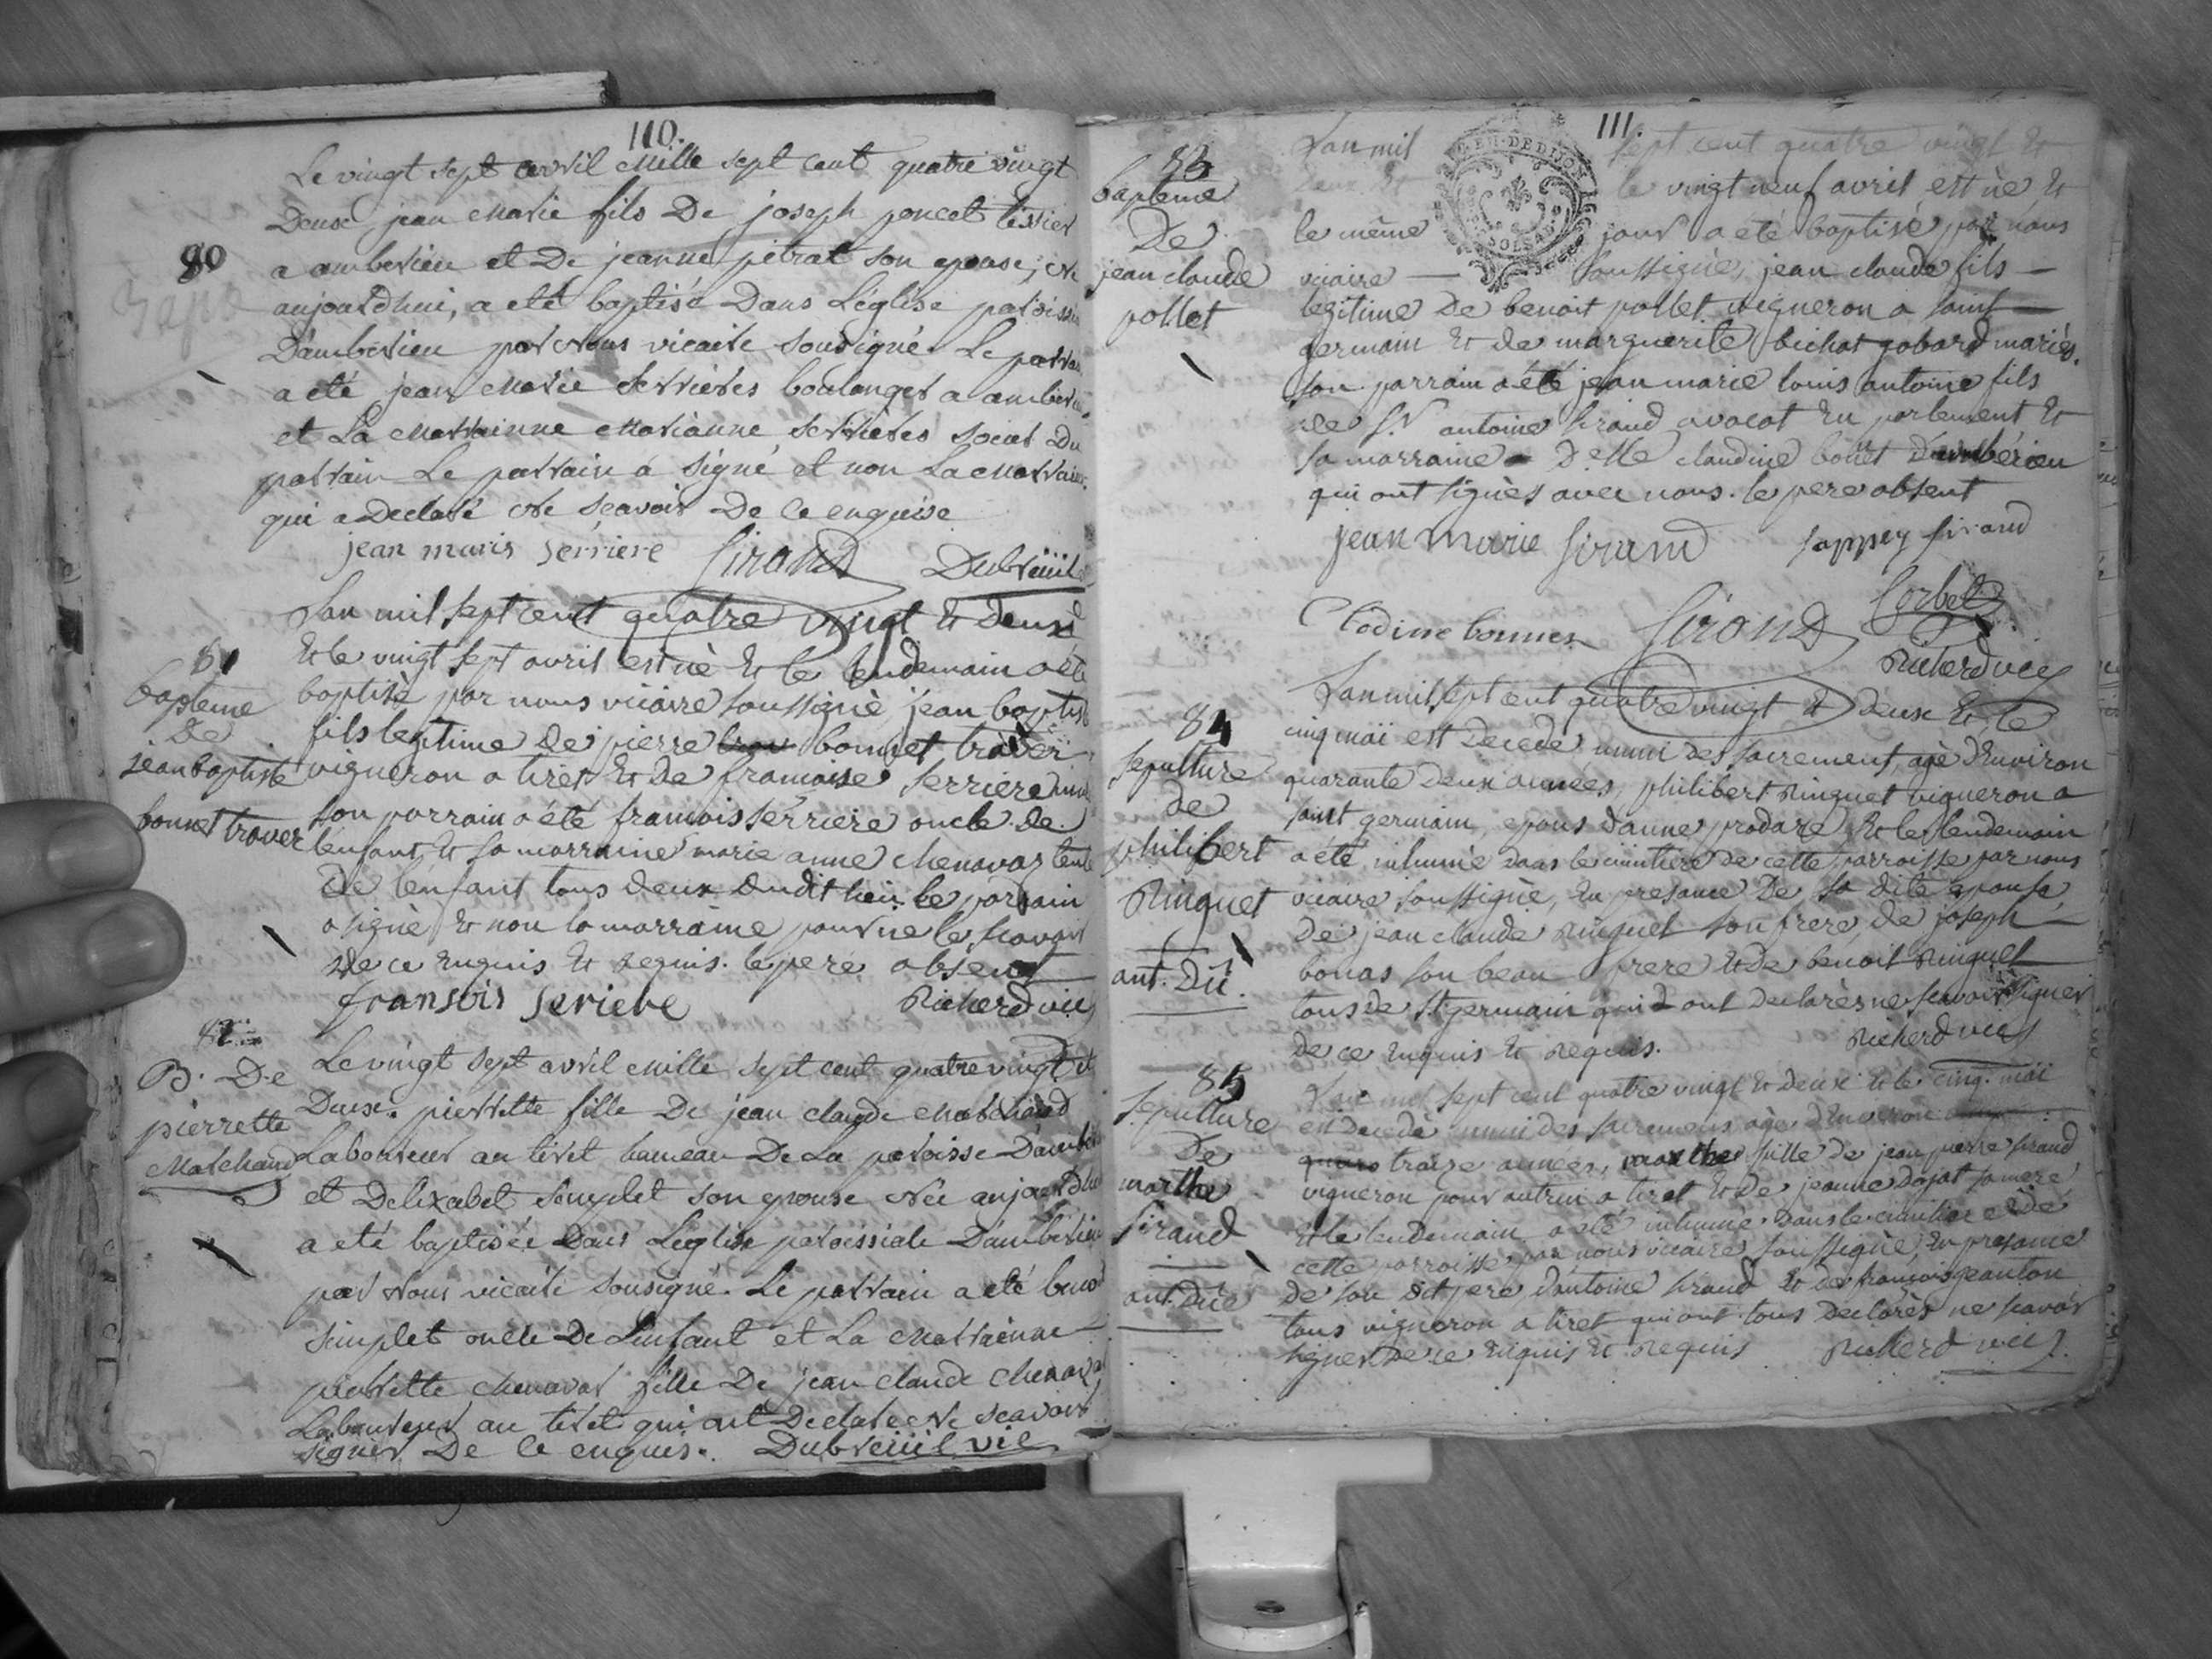 110.
Le vingt sept avril mille sept cent quatre vingt
Deuse jean marie fils De joseph poncet tissier
80
a amberieu et De jeanne pitrat son epouse, ne
aujourdhui, a eté baptisé Dans L'église paroissia
D'amberieu par nous vicaire sousigné. Le parrain
a été jean marie serrieres boulanger a amberieu
et La marrainne marianne serrieres soeur Du
parrain Le parrain a signé et non La marraine
qui a Declaré ne scavoir De ce enquise
jean maris serriere Sirand Dubreüil
Lan mil sept cent quatre vingt et deux
81
bapteme
De
jean baptiste
bonnet traver
et le vingt sept avril est né et le lendemain a été
baptisè par nous vicaire soussignè, jean baptist
fils legitime De pierre bonnet traver
vigneron a tiret et de francoise serriere
son parrain a été francois serriere oncle de
lenfant et sa marraine marie anne chenavaz tante
De lenfant tous deux dudit lieu le parrain
a signè et non la marraine pour ne le scavoir
de ce enquis et requis. le pere absent
fransois seriere Richerd vic
82
B. De
pierrette
Marchand
Le vingt sept avril mille sept cent quatre vingt et
Deuse. pierrette fille De jean claude marchand
Laboureur au tiret hameau De La paroisse D'amberie
et Delizabet simplet son epouse née aujourdhui
a eté baptisée Dans Leglise paroissiale D'amberieu
par nous vicaire sousigné. Le parrain a eté benoit
simplet oncle De Lenfant et La marrainne
pierrette chenavas fille De jean claude chenavas
Laboureur au tiret qui ont Declaré ne scavoir
signer De ce enquis. Dubreüil vic
111.
83
bapteme
De
jean claude
pollet
Lan mil sept cent quatre vingt et
deux et le vingt neuf avril est né et
le même jour a eté baptisé par nous
vicaire — soussigné, jean claude fils —
legitime De benoit pollet vigneron a saint —
germain et de marguerite bichat gobard mariés.
son parrain a été jean marie louis antoine fils
de Sr antoine sirand avocat en parlement et
sa marraine Delle claudine bonet D'ambérieu
qui ont signès avec nous. le pere absent
jean marie sirand sappey sirand
Clodine bonnes Sirand Sorbet
Richerd vic
84
sepulture
de
philibert
Ringuet
ant. Dû.
Lan mil sept cent quatre vingt et deux et le
cinq maï est Decedé muni des sacrement, agé d'Environ
quarante deux années, philibert Ringuet vigneron a
saint germain, epous d'anne prodare et le lendemain
a été inhumé dans le cimitiere de cette parroisse par nous
vicaire soussignè, en presance De sa dite epouse,
De jean claude Ringuet son frere de joseph —
bonas son beau frere et de benoit Ringuet
tous de st germain qui ont declarés ne scavoir signer
De ce enquis et requis. Richerd vic
85
sepulture
De
marthe
sirand
ant. Düe
Lan mil sept cent quatre vingt et deux et le cinq maï
est decedé muni des sacremens agée d'Environ
traize années, marthe fille de jean pierre sirand
vigneron pour autrui a tiret et de jeanne dajat sa mere
et le lendemain a eté inhumé dans le cimitiere de
cette parroisse par nous vicaire soussigné, en presance
de son dit pere d'antoine sirand et de françois jeanton
tous vigneron a tiret qui ont tous Declarès ne scavoir
signer De ce enquis et requis Richerd vic